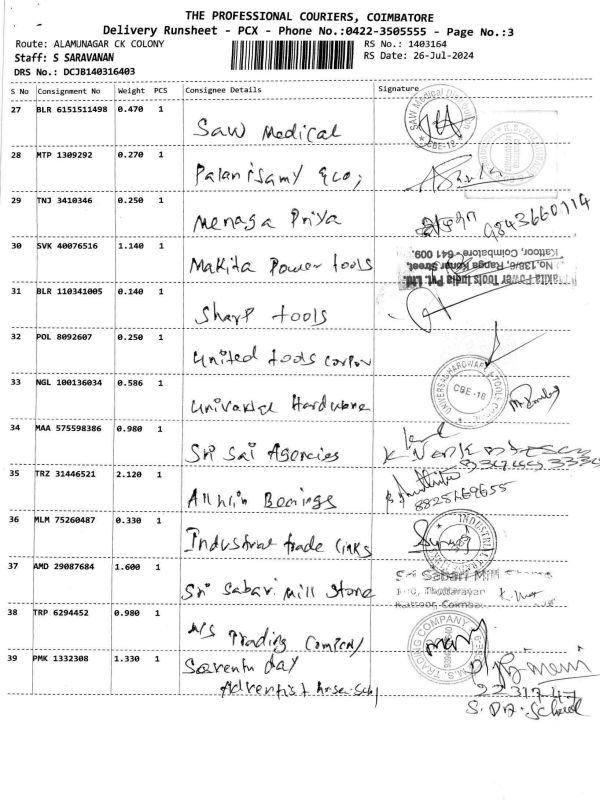 THE PROFESSIONAL COURIERS, COIMBATORE
Delivery Runsheet - PCX - Phone No.:0422-3505555 - Page No.:3
Route: ALAMUNAGAR CK COLONY
RS No.: 1403164
Staff: S SARAVANAN
RS Date: 26-Jul-2024
DRS No.: DCJB140316403
S No Consignment No Weight PCS Consignee Details Signature
27 BLR 6151511498 0.470 1
Saw Medical
CBE-12
28 MTP 1309292 0.270 1
Palanisamy &co;
29 TNJ 3410346 0.250 1
Menaga Priya
9843660114
30 SVK 40076516 1.140 1
Makita Power tools
Makita Power Tools India Pvt. Ltd.
No.138/6, Ranga Konar Street,
Kattoor, Coimbatore - 641 009.
31 BLR 110341005 0.140 1
Sharp tools
32 POL 8092607 0.250 1
United tools corpor
33 NGL 100136034 0.586 1
Universal Hardware
UNIVERSAL HARDWARE & TOOLS
CBE-18
34 MAA 575598386 0.980 1
Sri Sai Agencies
35 TRZ 31446521 2.120 1
Bearings
8825469655
36 MLM 75260487 0.330 1
Industrial trade links
INDUSTRIAL
37 AMD 29087684 1.600 1
Sri Sabari Mill Stone
Sri Sabari Mill
Kattoor, Coimba
38 TRP 6294452 0.980 1
M/S Trading Company
M.S. TRADING COMPANY
39 PMK 1332308 1.330 1
Seventh day
Adventist
S.DA.School